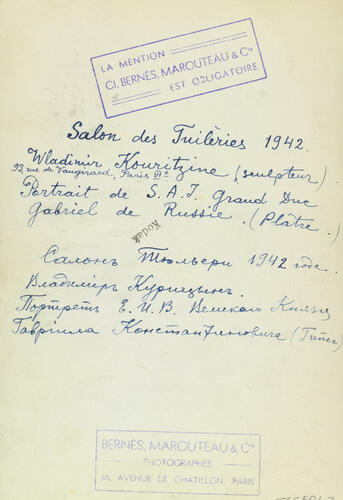 LA MENTION
Cl. BERNÈS, MAROUTEAU & Cie
EST OBLIGATOIRE
Salon des Tuilèries 1942.
Wladimir Kouritzine (sculpteur)
93, rue de Vaugirard, Paris VIe
Portrait de S.A.I. Grand Duc
Gabriel de Russie. (Plâtre.)
Kodak
Салонъ Тюльери 1942 года.
Владимiръ Курицынъ.
Портретъ Е.И.В. Великаго Князя
Гаврiила Константиновича (Гипсъ)
BERNÈS, MAROUTEAU & Cie
PHOTOGRAPHES
36, AVENUE DE CHATILLON, PARIS